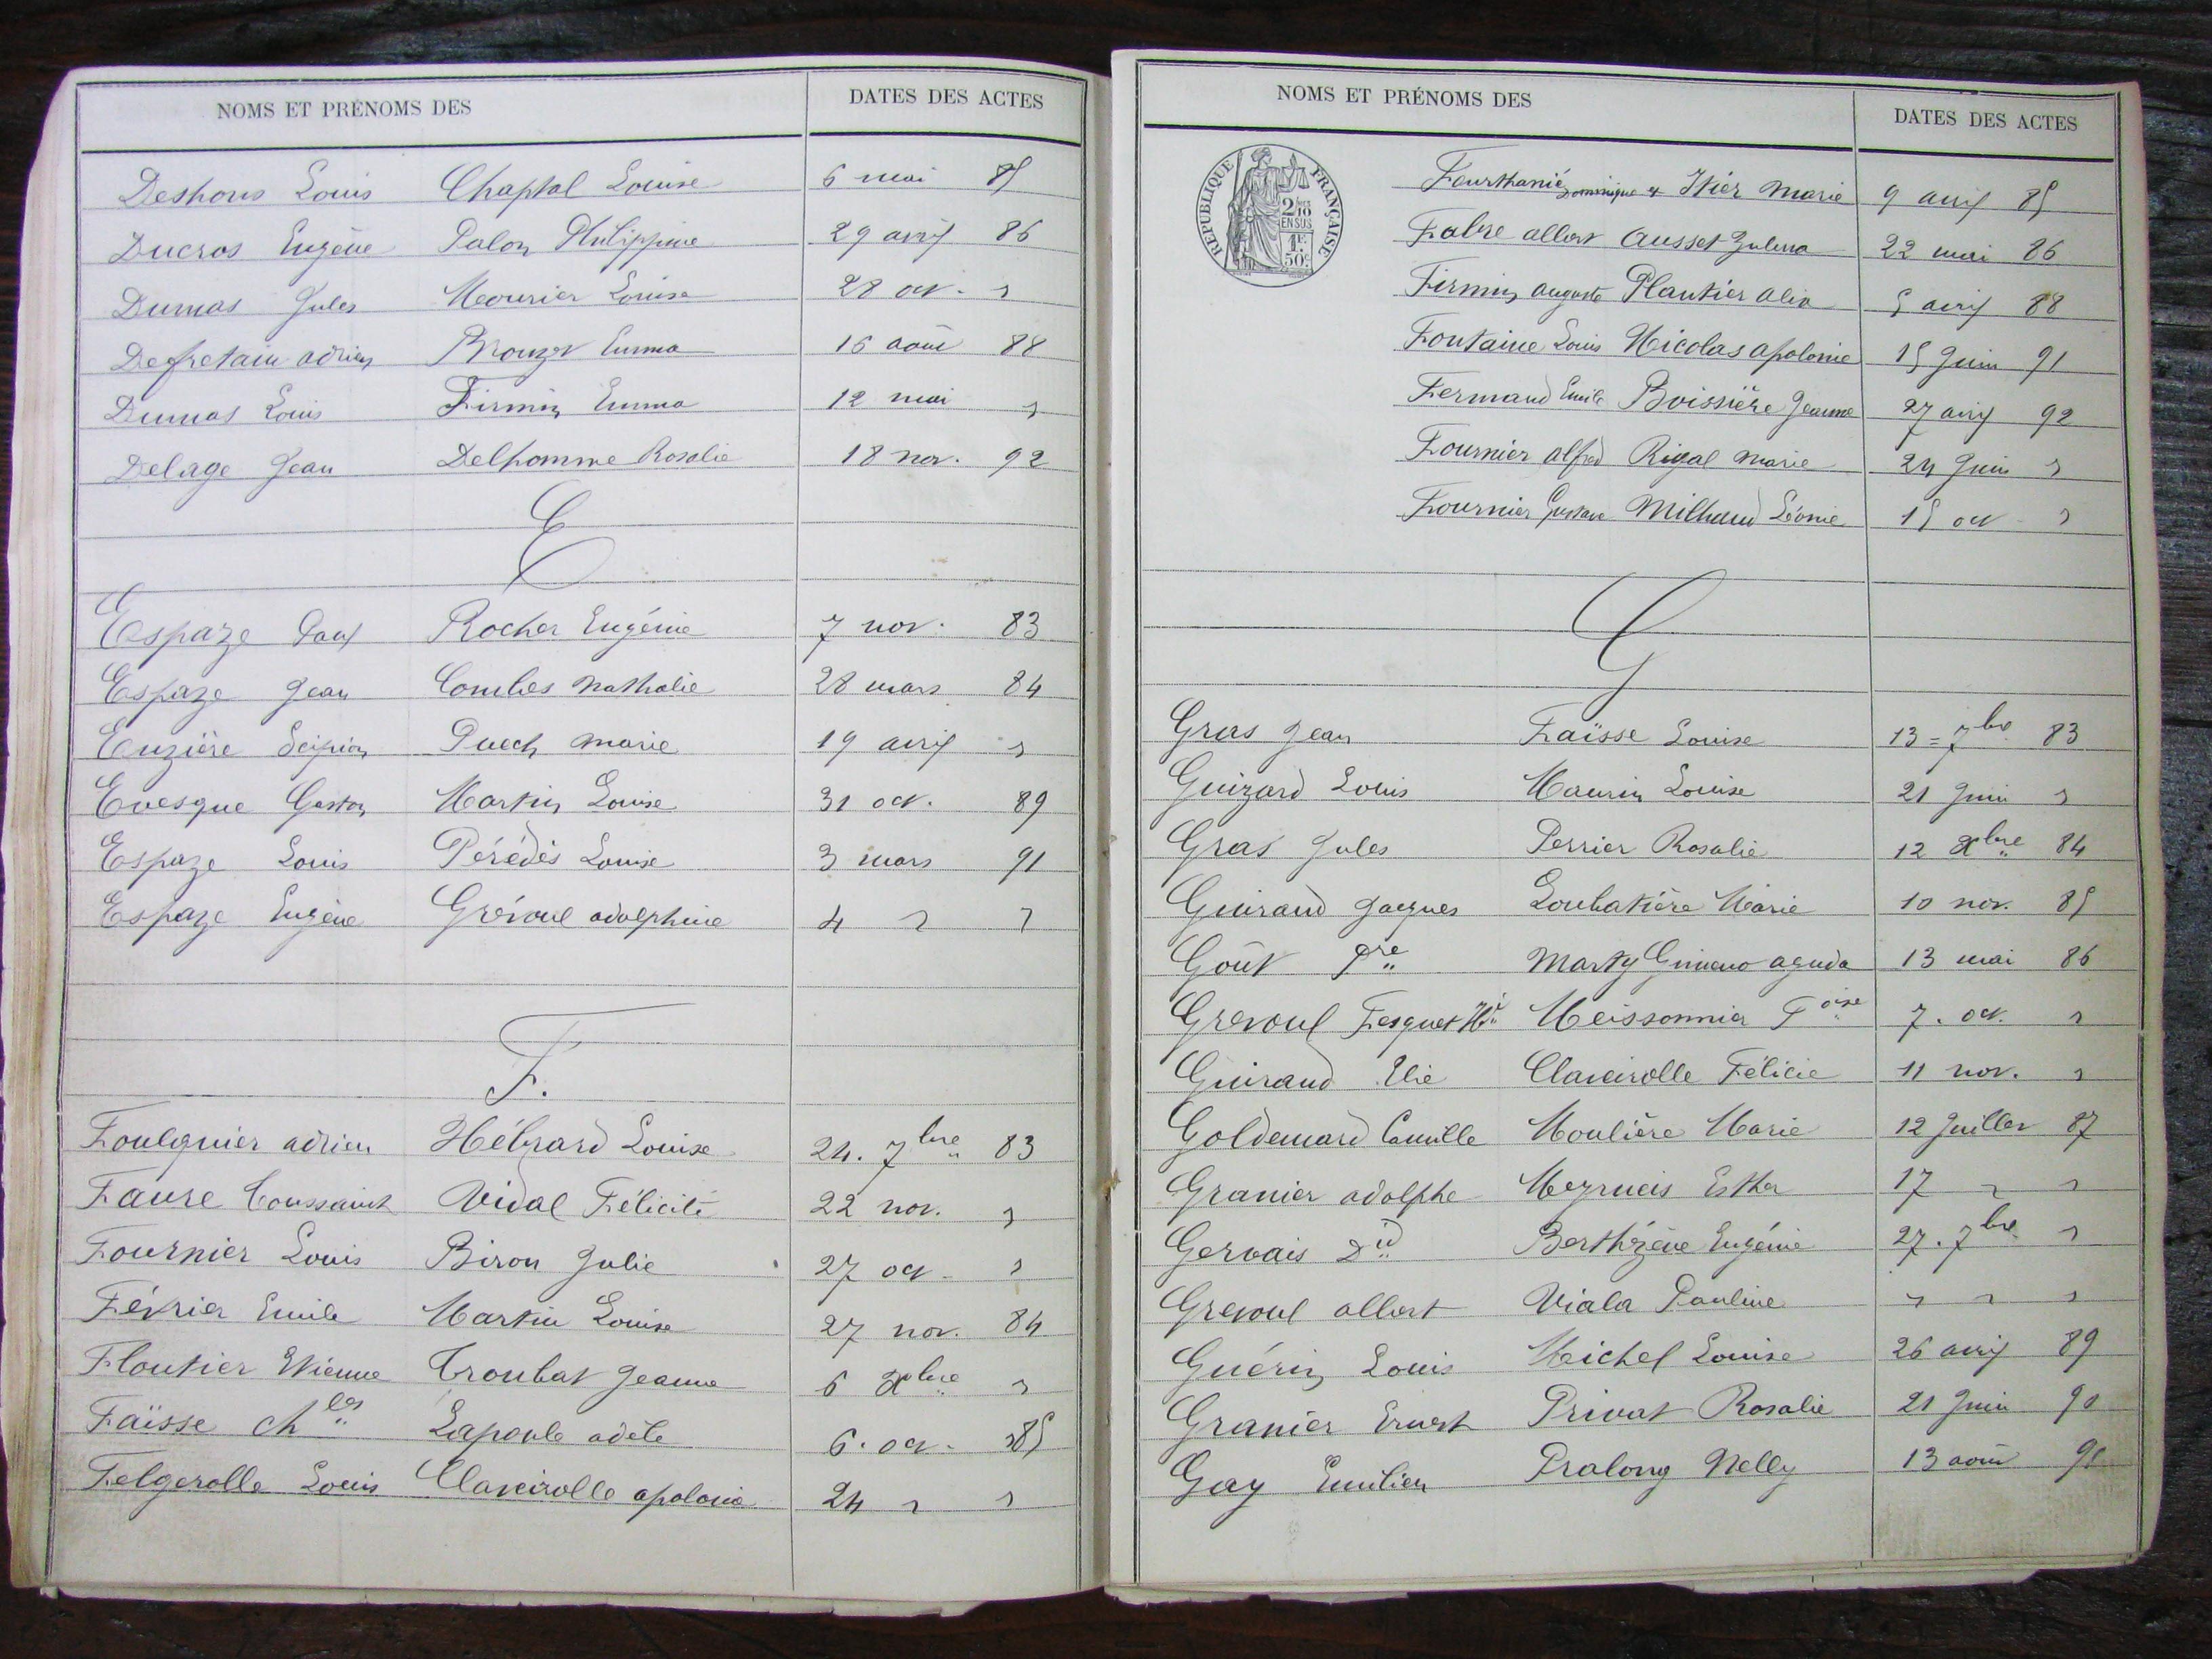 NOMS ET PRÉNOMS DES DATES DES ACTES
Deshons Louis Chaptal Louise 6 mai 85
Ducros Eugène Palon Philippine 29 avril 86
Dumas Jules Mourier Louise 28 oct. "
Defretain adrien Brouzet Emma 16 août 88
Dumas Louis Firmin Emma 12 mai "
Delage Jean Delhomme Rosalie 18 nov. 92
E
Espaze Paul Rocher Eugénie 7 nov. 83
Espaze Jean Combes Nathalie 28 mars 84
Euzière Scipion Puech marie 19 avril "
Evesque Gaston Martin Louise 31 oct. 89
Espaze Louis Pérédès Louise 3 mars 91
Espaze Eugène Grévoul adolphine 4 " "
F.
Foulquier adrien Hébrard Louise 24. 7bre 83
Faure Toussaint Vidal Félicité 22 nov. "
Fournier Louis Biron Julie 27 oct. "
Février Emile Martin Louise 27 nov. 84
Floutier Etienne Troubat Jeanne 6 Xbre "
Faïsse Chles Lapeule adèle 6. oct. 85
Felgerolle Louis Claveirolle apolonie 24 " "
NOMS ET PRÉNOMS DES DATES DES ACTES
RÉPUBLIQUE FRANÇAISE
2/10
EN SUS
1F.
50c.
Fourthanié Dominique & Itier Marie 9 avril 85
Fabre albert Ausset Zulma 22 mai 86
Firmin auguste Plantier alix 5 avril 88
Fontaine Louis Nicolas apolonie 15 Juin 91
Fermaud Emile Boissière Jeanne 27 avril 92
Fournier alfred Rigal Marie 24 Juin "
Fournier Gustave Milhaud Léonie 15 oct "
G
Gras Jean Faïsse Louise 13 = 7bre 83
Guizard Louis Maurin Louise 21 Juin "
Gras Jules Perrier Rosalie 12 Xbre 84
Guiraud Jacques Loubatière Marie 10 nov. 85
Goût Pre Marty Gimeno agueda 13 mai 86
Grevoul Fesquet Meissonnier Foise 7. oct. "
Guiraud Elie Claveirolle Félicie 11 nov. "
Goldemard Camille Moulière Marie 12 Juillet 87
Granier adolphe Meyrueis Esther 17 " "
Gervais Dd Berthézène Eugénie 27. 7bre "
Grevoul albert Viala Pauline " " "
Guérin Louis Michel Louise 26 avril 89
Granier Ernest Privat Rosalie 21 Juin 90
Gay Emilien Pralong Nelly 13 août 91